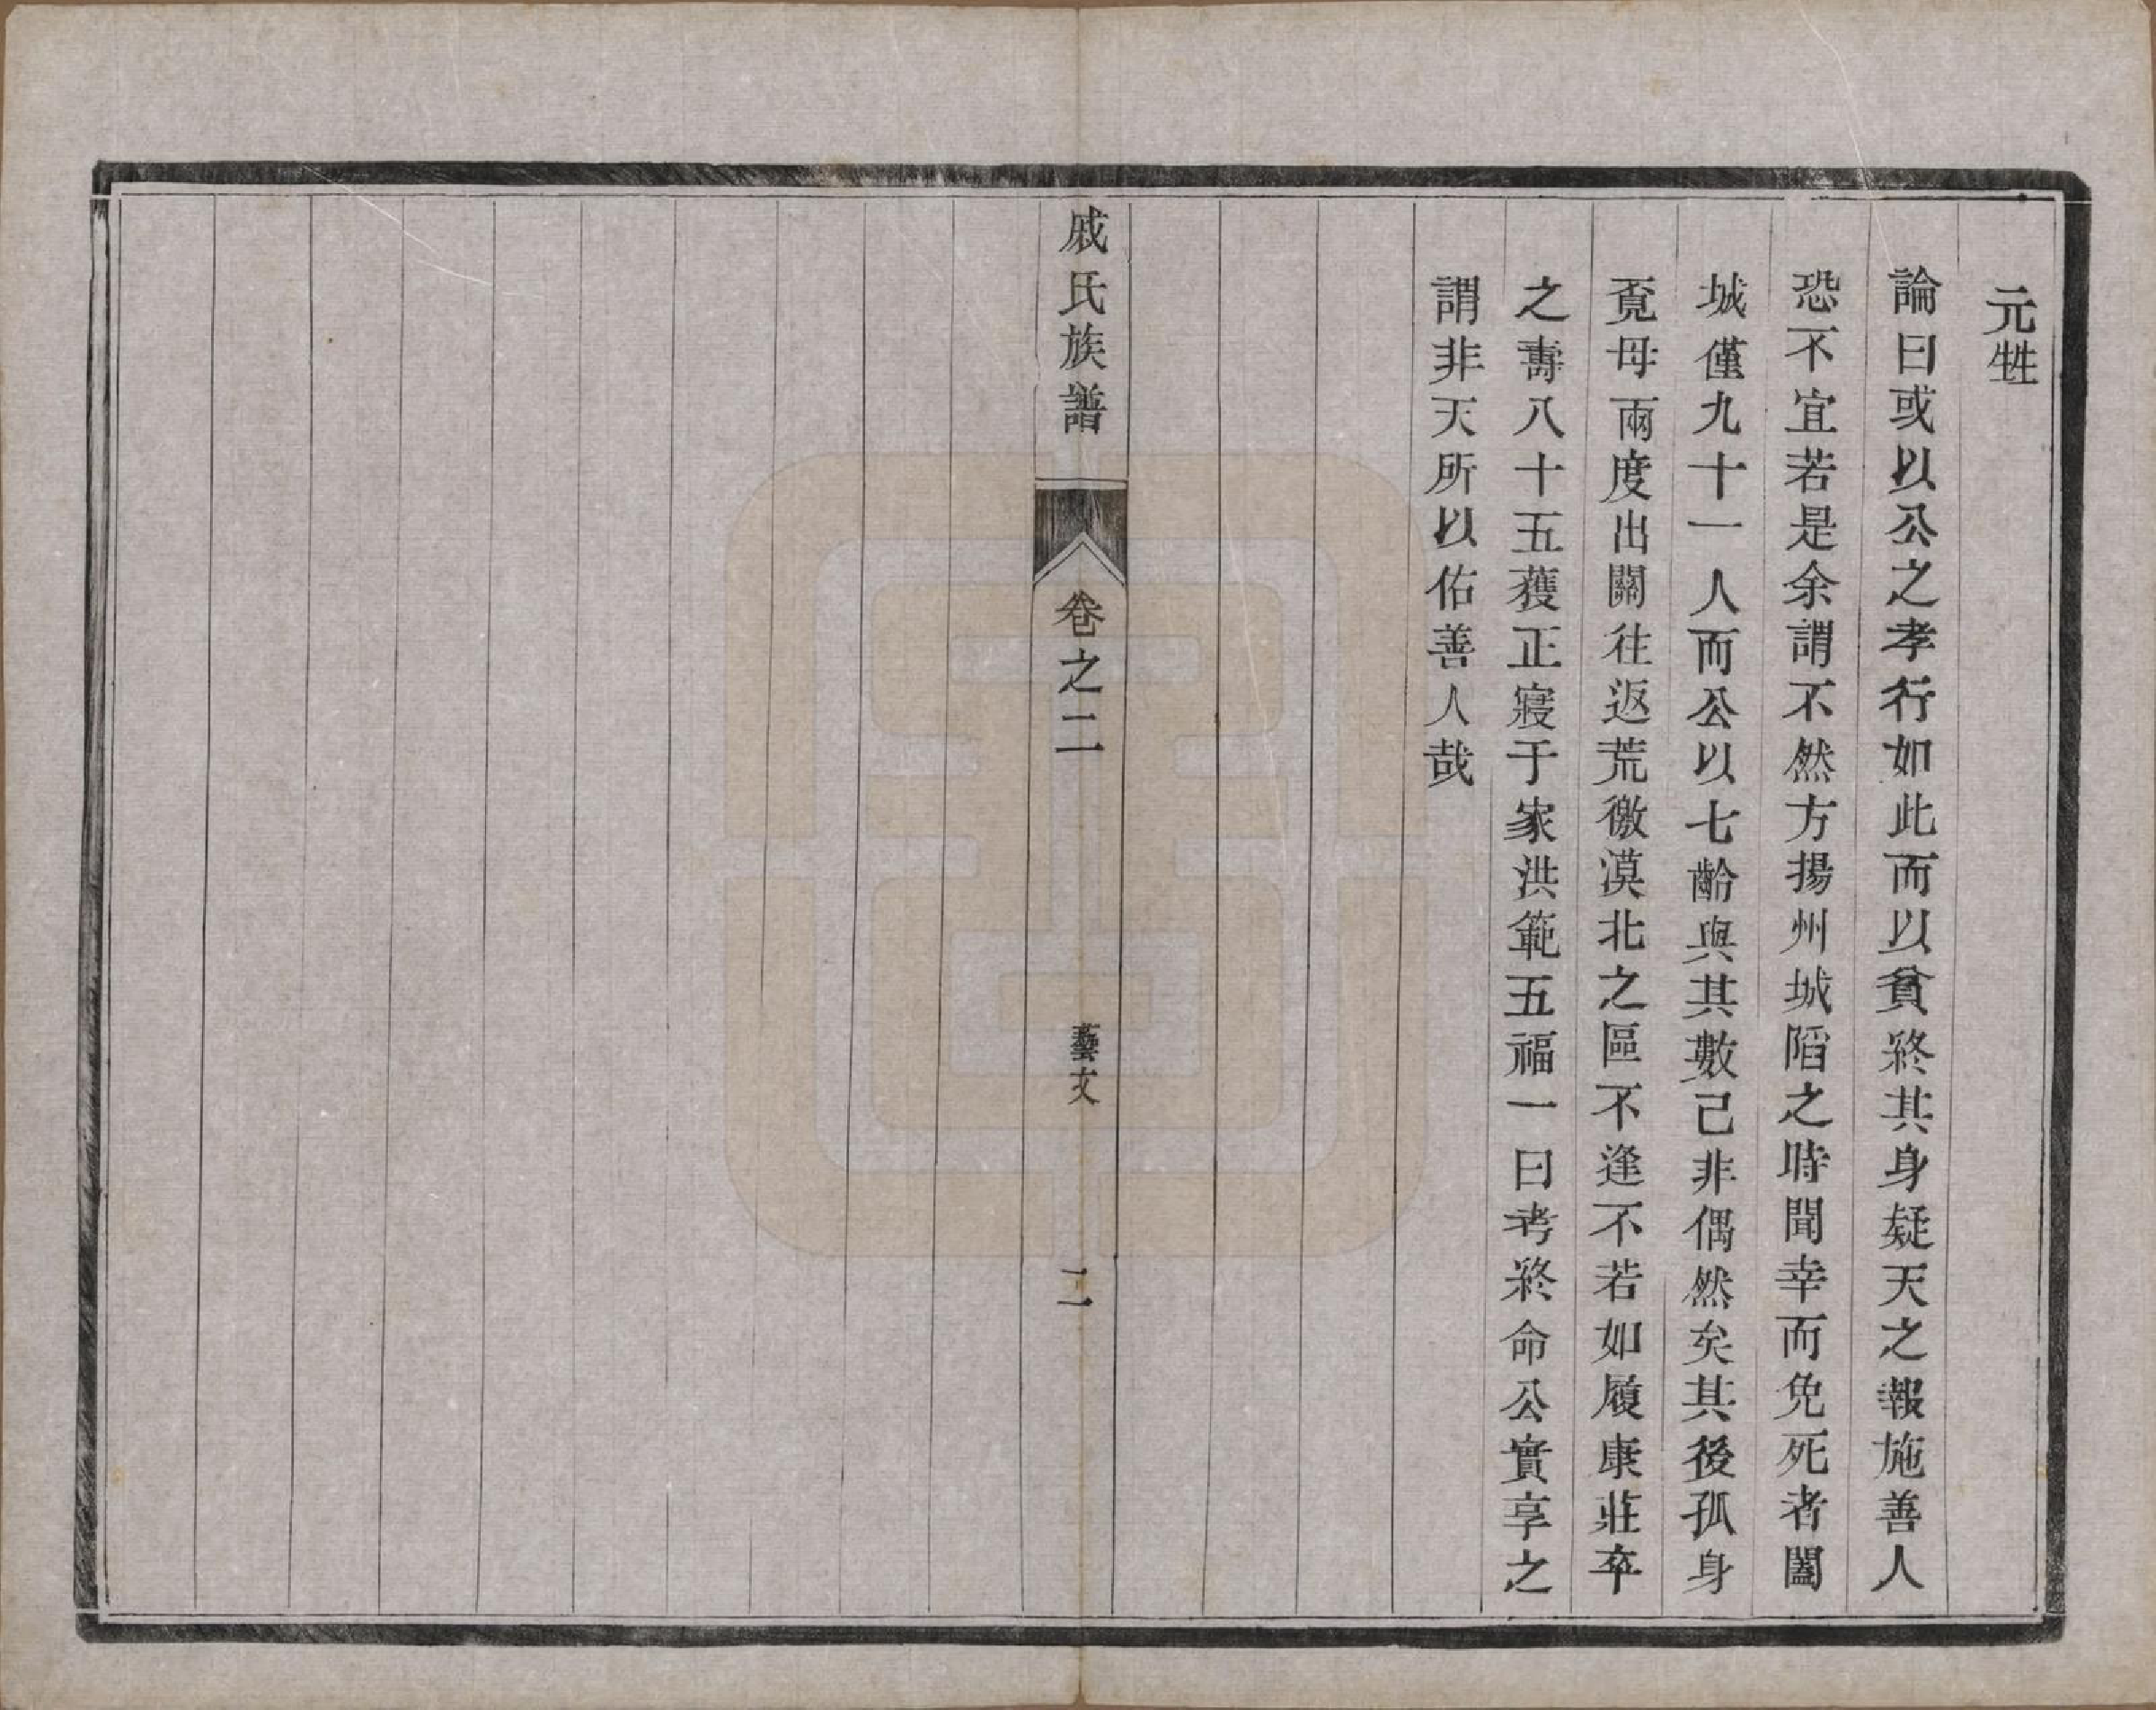 元甡
論曰或以公之孝行如此而以貧終其身疑天之報施善人
恐不宜若是余謂不然方揚州城陷之時聞幸而免死者闔
城僅九十一人而公以七齡與其數已非偶然矣其後孤身
覔母兩度出關往返荒徼漠北之區不逢不若如履康莊卒
之壽八十五獲正寢于家洪範五福一曰考終命公實享之
謂非天所以佑善人哉
戚氏族譜 卷之二 藝文 二